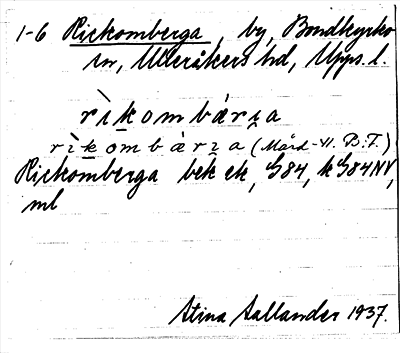 1-6 Rickomberga, by, Bondkyrko
sn, Ulleråkers hd, Upps. l.
rìkombárɀa
rìkombárɀa (Mård-H. B.T.)
Rickomberga bek ek, G84, k G84NV,
ml
Stina Sallander 1937.